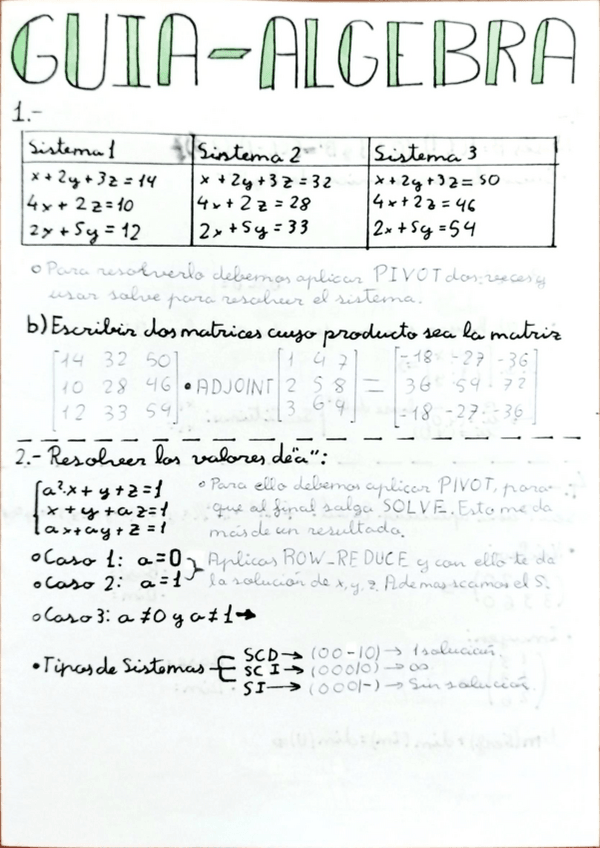 GUIA-ALGEBRA
1.-
Sistema 1 Sistema 2 Sistema 3
x+2y+3z=14 x+2y+3z=32 x+2y+3z=50
4x+2z=10 4x+2z=28 4x+2z=46
2x+5y=12 2x+5y=33 2x+5y=54
o Para resolverlo debemos aplicar PIVOT dos veces y
usar solve para resolver el sistema.
b) Escribir dos matrices cuyo producto sea la matriz
[14 32 50] [1 4 7] [-18 -27 -36]
[10 28 46] • ADJOINT [2 5 8] = [36 54 72]
[12 33 54] [3 6 9] [-18 -27 -36]
2.- Resolver los valores de "a":
a²·x+y+z=1 o Para ello debemos aplicar PIVOT, para
x+y+az=1 que al final salga SOLVE. Esto me da
ax+ay+z=1 más de un resultado.
o Caso 1: a=0 } Aplicas ROW_REDUCE y con ello te da
o Caso 2: a=1 la solución de x, y, z. Ademas scamos el S.
o Caso 3: a≠0 y a≠1→
• Tipos de Sistemas { SCD→ (00-10)→ 1 solucion.
SCI→ (000|0)→∞
SI→ (000|-)→ Sin solución.